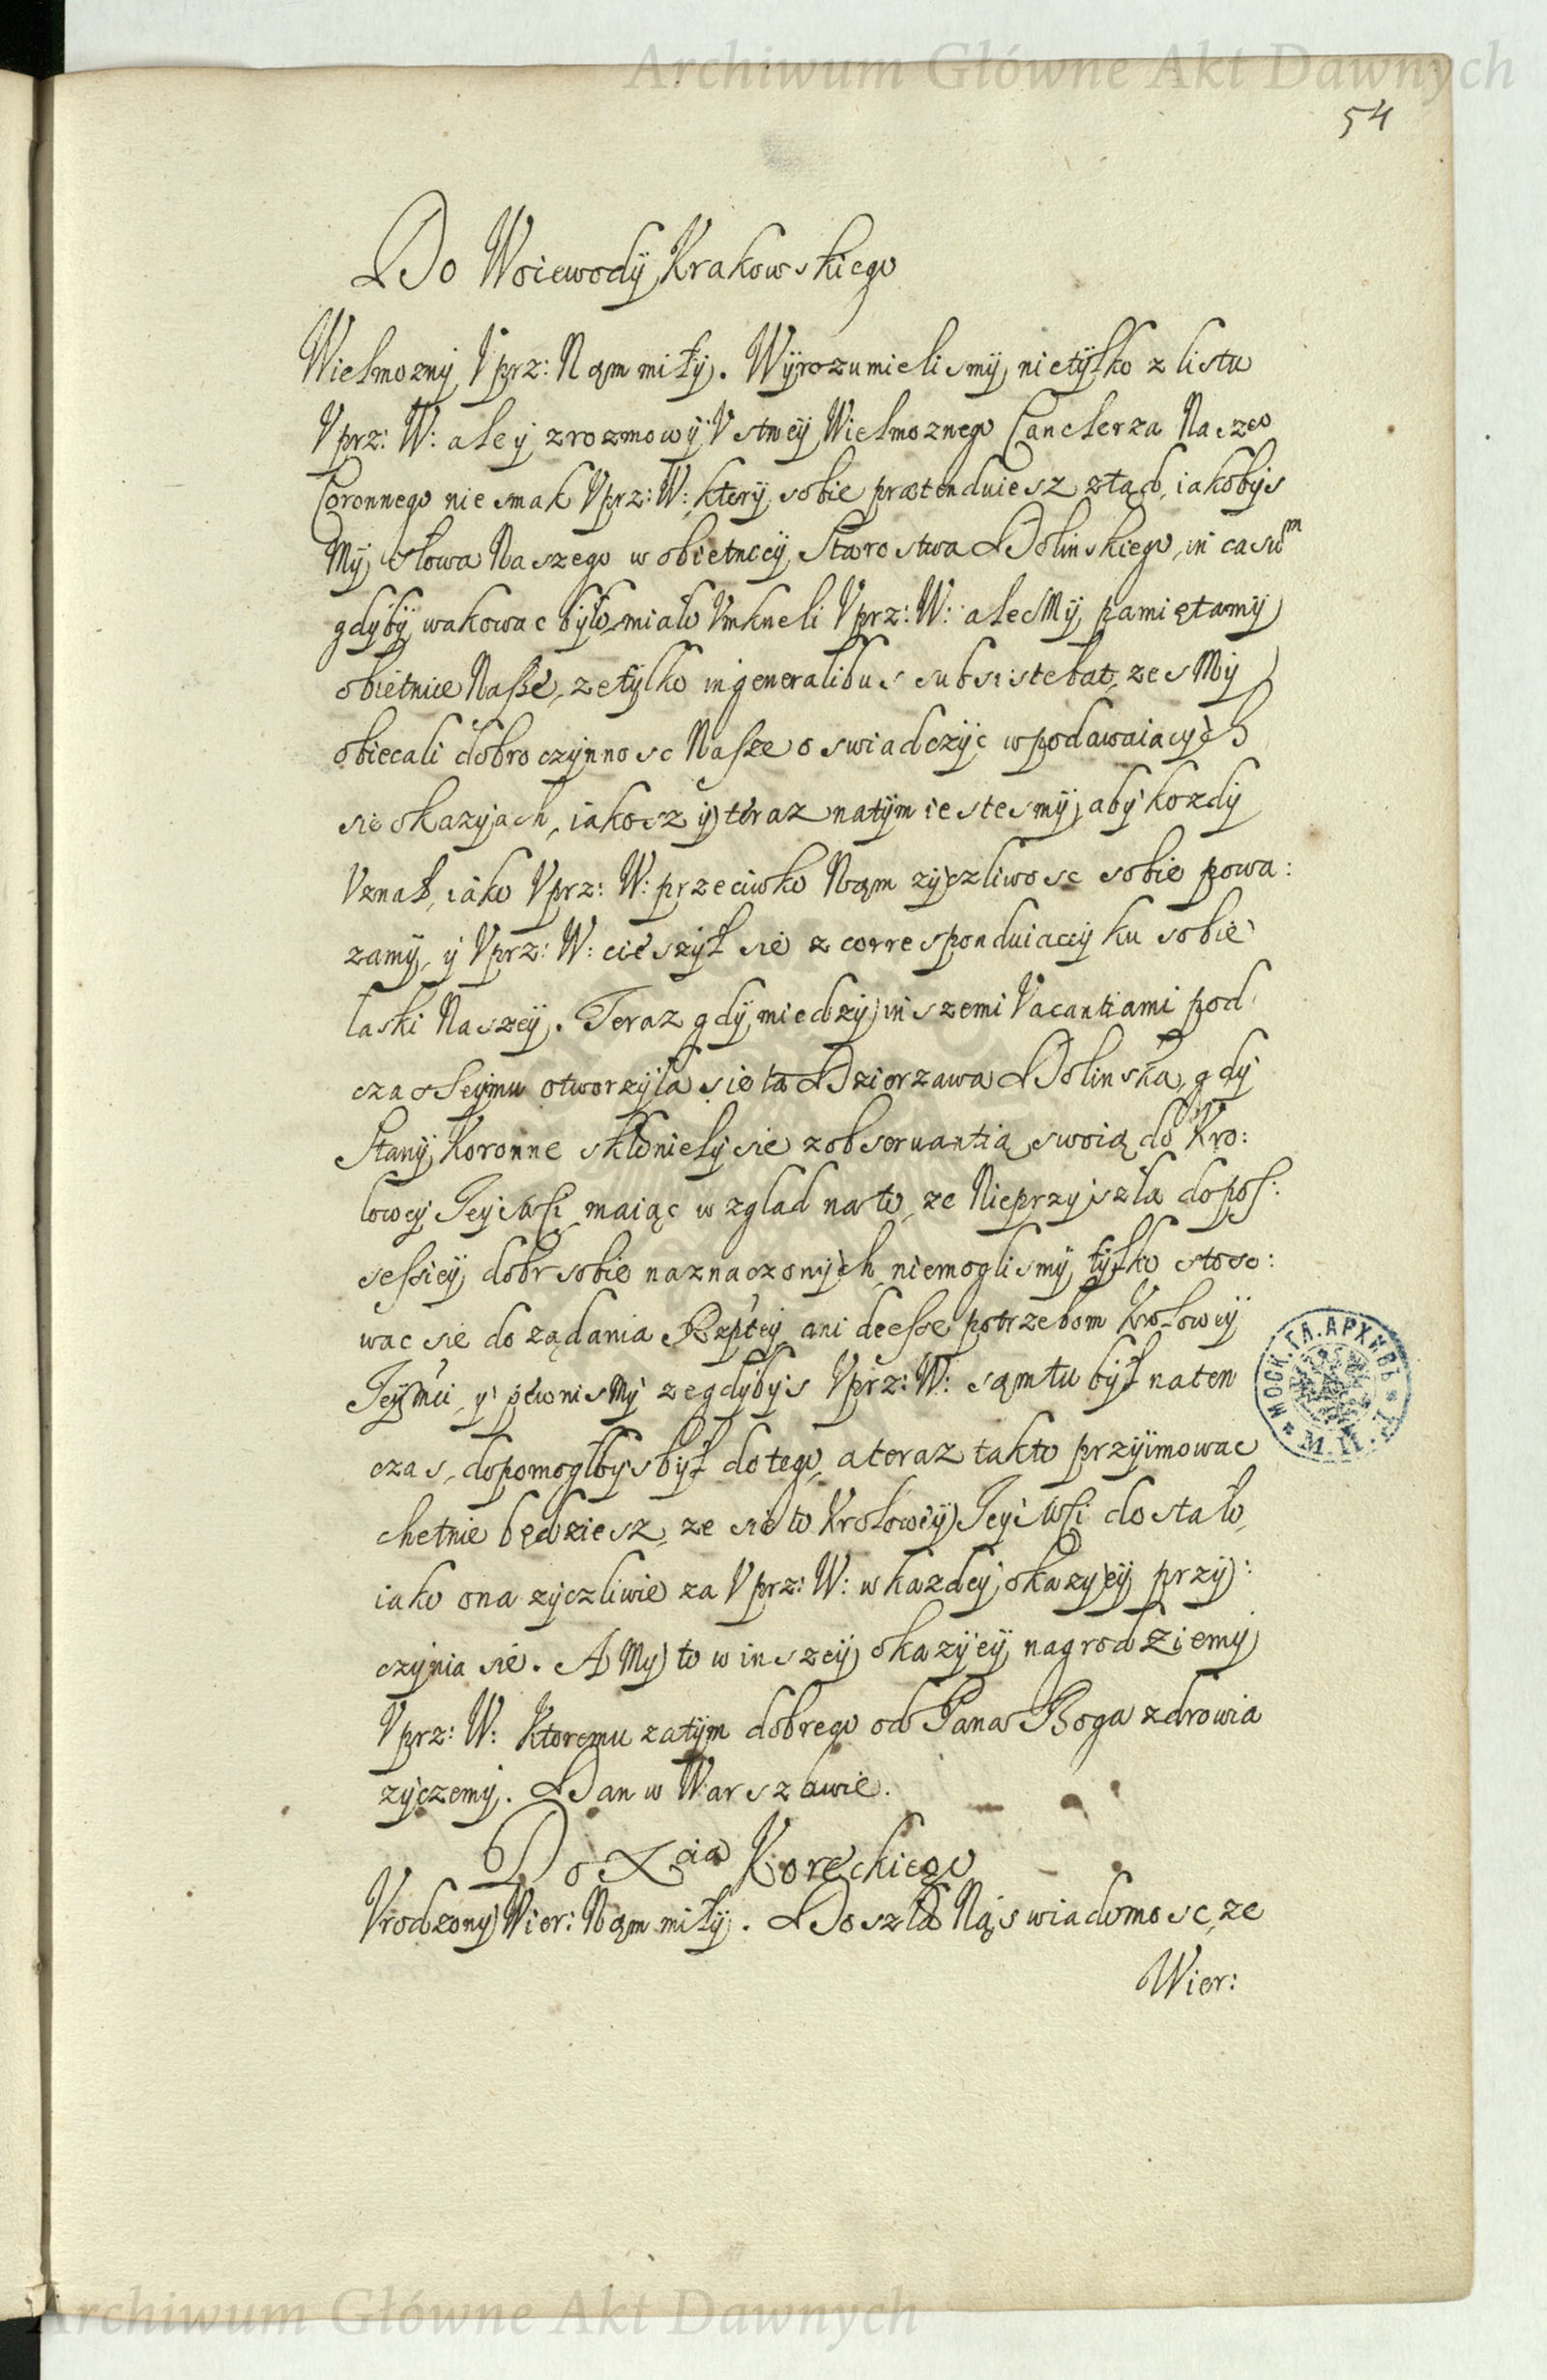 Archiwum Główne Akt Dawnych
54
Do Woiewody Krakowskiego
Wielmozny Vprz: Nąm miły. Wyrozumielismy nietylko z listu
Vprz: W: aley zrozmowy Vstney Wielmoznego Canclerza Naszeo
Coronnego niesmak Vprz: W: ktory sobie prætenduiesz ztąd, iakobys
My słowa Naszego w obietnicy Starostwa Dolinskiego, in casum
gdyby wakowac było miało Vmkneli Vprz: W: alesMy pamiętamy
obietnice Naße, ze tylko in generalibus subsistebat, zesMy
obiecali dobroczynnosc Nasze oswiadczyc w podawaiacych
sie okazyjach, iakosz y teraz natym iestesmy, aby kozdy
Vznał, iako Vprz: W: przeciwko Nąm zyczliwosc sobie powa:
zamy, y Vprz: W: cieszył sie z correspunduiaccy ku sobie
łaski Naszey. Teraz gdy miedzy inszemi Vacantiami pod
czas Seymu otworzyła sie ta Dzierzawa Dolinska, gdy
Stany Koronne skłoniely sie z obseruantią swoią do Kro:
lowey Jey Msci maiąc wzglad na to, ze Nieprzyszła do pos:
sessiey dobr sobie naznaczonych, niemoglismy tylko stoso:
wac sie do ządania Rzptey ani deesse potrzebom Krolowey
Jeymci, y pewnismy ze gdybys Vprz: W: sąm tu był naten
czas, dopomogłbys był do tego, a teraz takto przyimowac
chetnie będziesz, ze sie to Krolowey Jey Msci dostało,
iako ona zyczliwie za Vprz: W: w kazdey okazyey przy:
czynia sie. A My to w inszey okazyey nagrodziemy
Vprz: W: Ktoremu zatym dobrego od Pana Boga zdrowia
zyczemy. Dan w Warszawie.
Do Xcia Koreckiego
Vrodzony Wier: Nąm miły. Doszła Nąs wiadomosc, ze
Wier:
МОСК. ГЛ. АРХИВЪ
М. И. Д.
Archiwum Główne Akt Dawnych